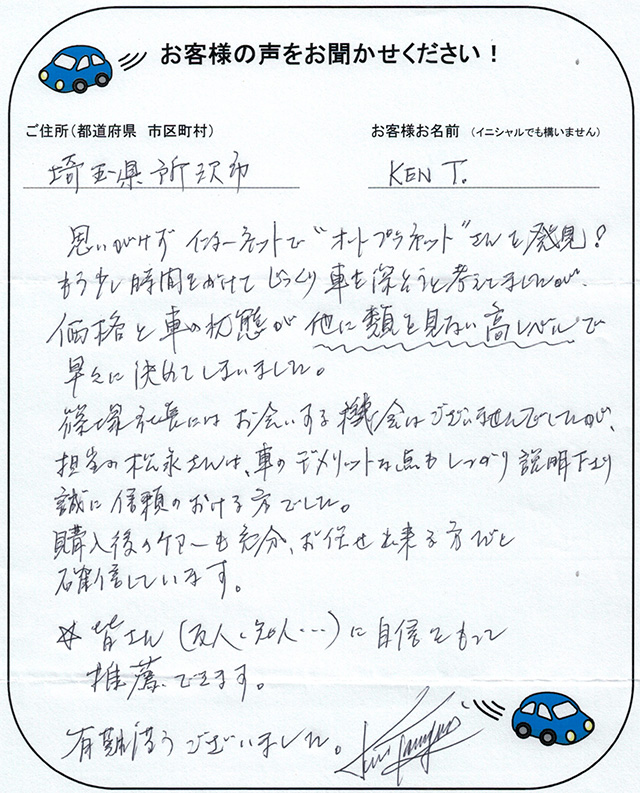 お客様の声をお聞かせください！
ご住所（都道府県 市区町村） お客様お名前 （イニシャルでも構いません）
埼玉県所沢市 KEN T.
思いがけず インターネットで “オートプラネット” さんを発見！
もう少し時間をかけて じっくり車を探そうと考えてましたが、
価格と車の状態が 他に類を見ない高レベルで
早々に決めてしまいました。
篠塚社長には お会いする機会はございませんでしたが、
担当の松永さんは、車のデメリットな点もしっかり説明下さり
誠に信頼のおける方でした。
購入後のケアーも充分、お任せ出来る方だと
確信しています。
☆ 皆さん（友人・知人・・・）に自信をもって
推薦できます。
有難うございました。